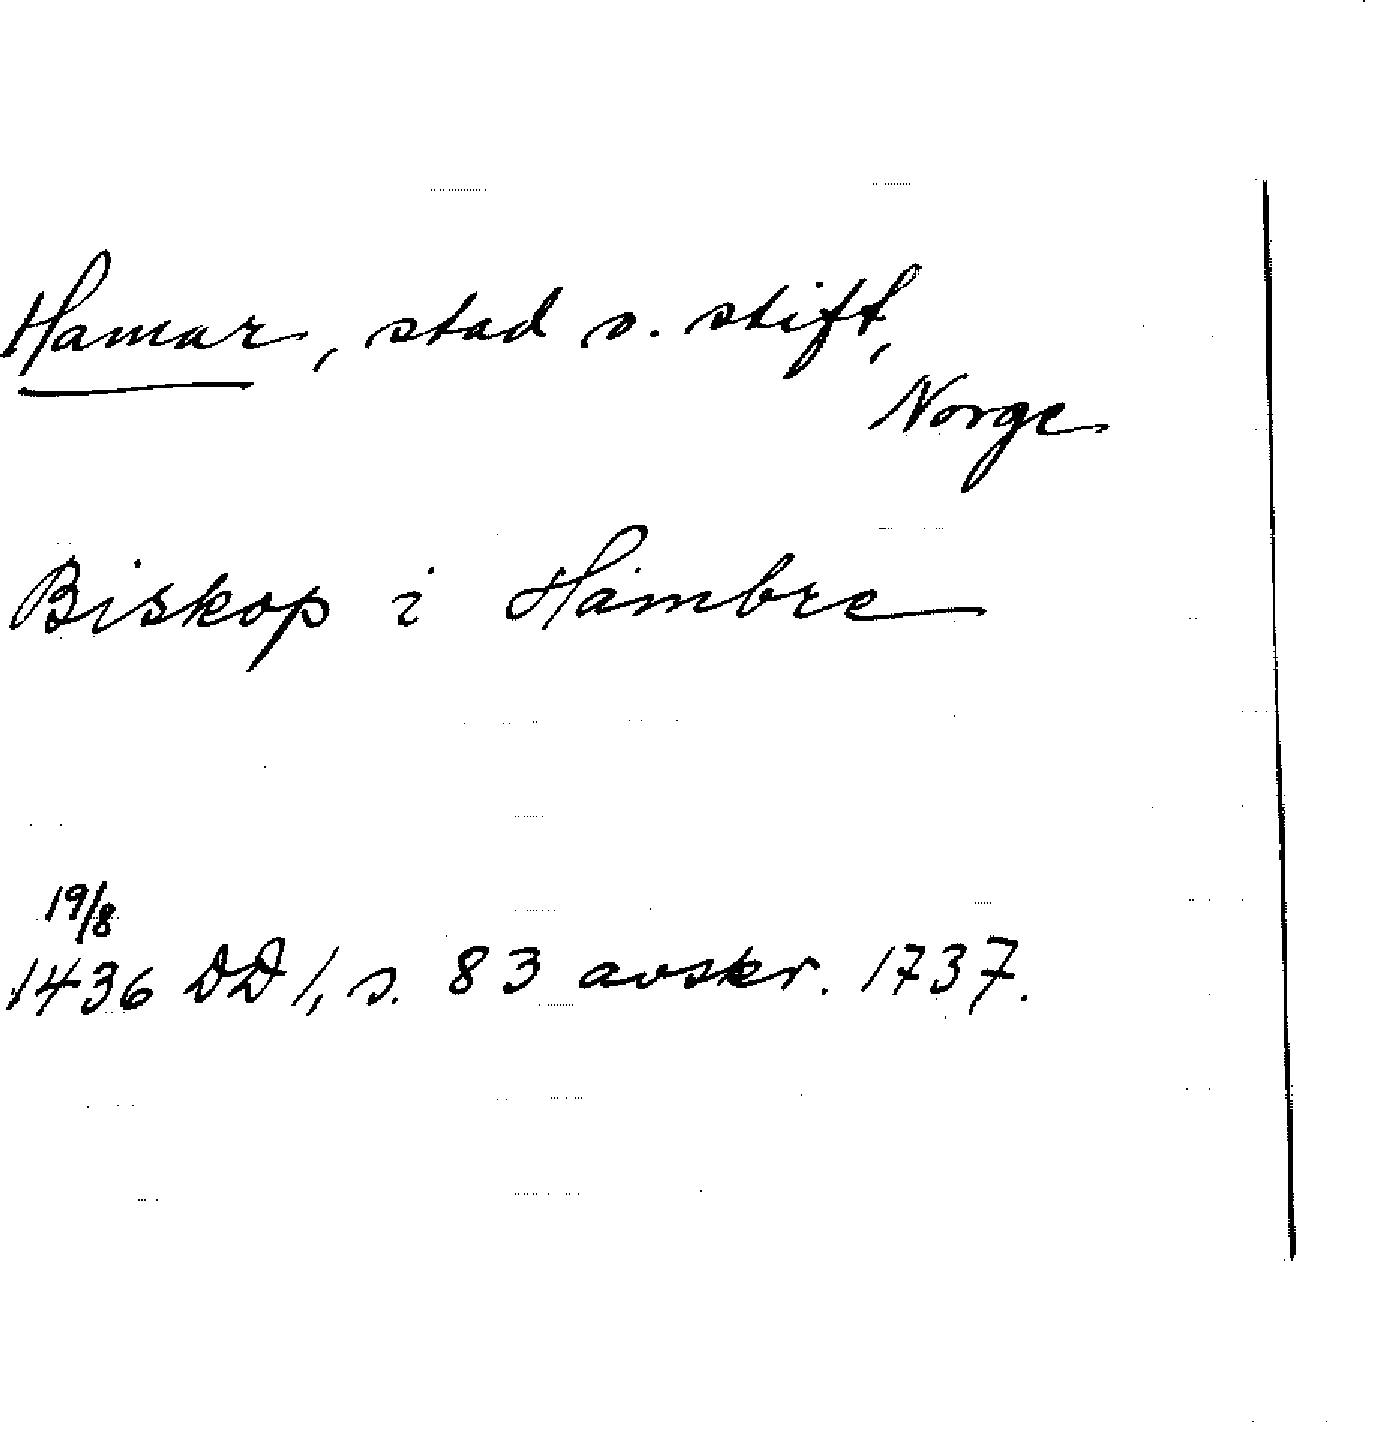 Hamar, stad o. stift,
Norge
Biskop i Hambre
19/8
1436 DD 1, s. 83 avskr. 1737.